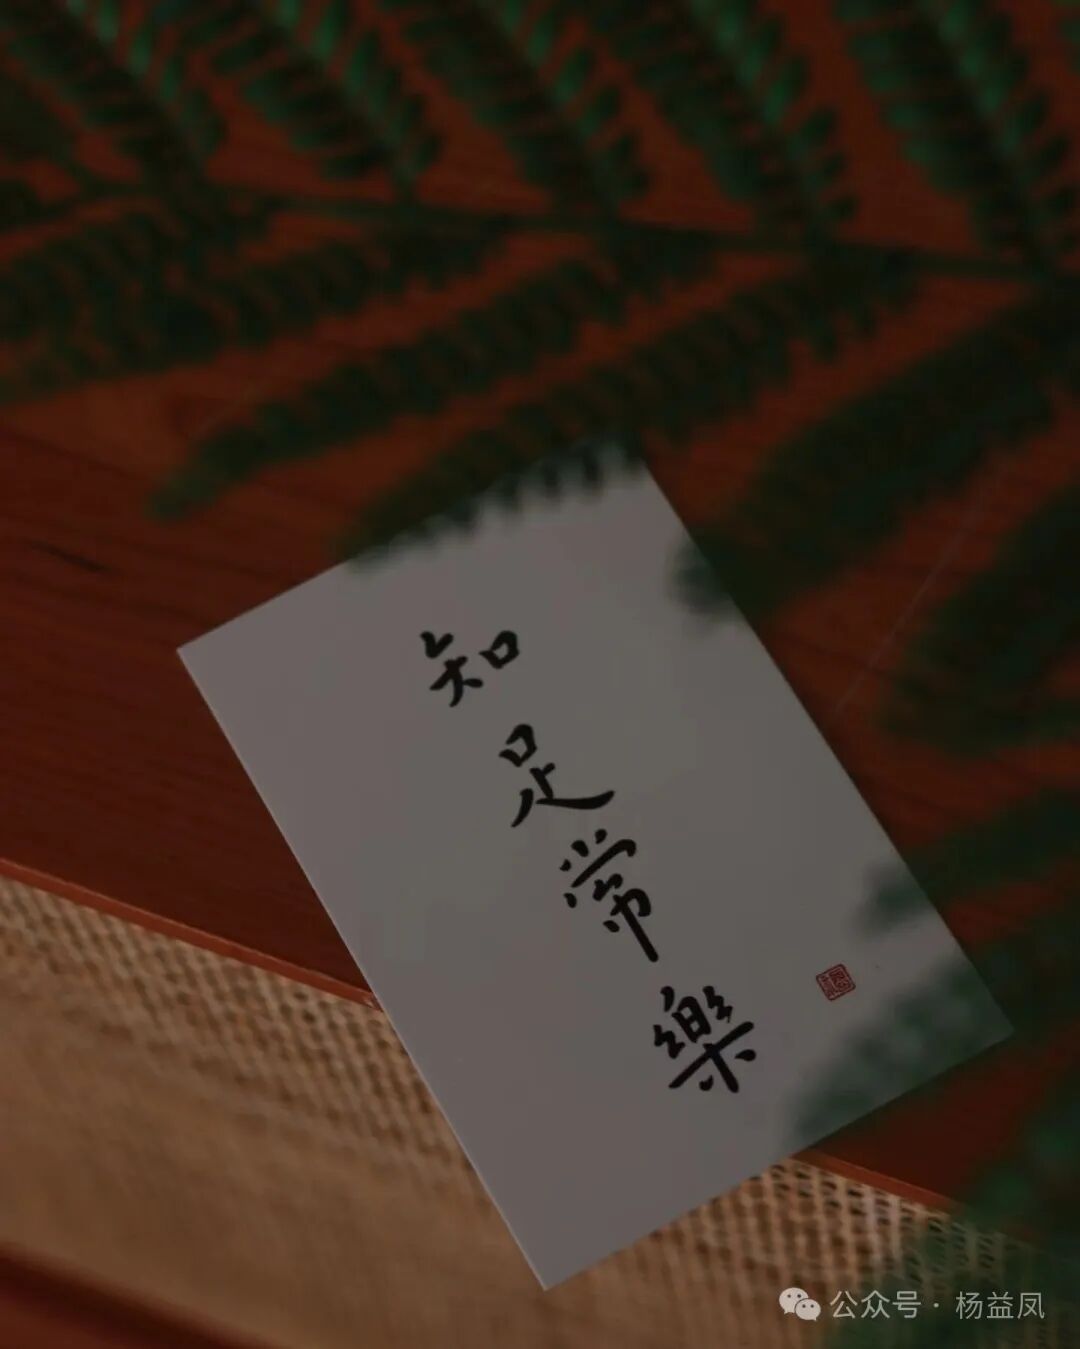 知足常樂
福
公众号·杨益凤